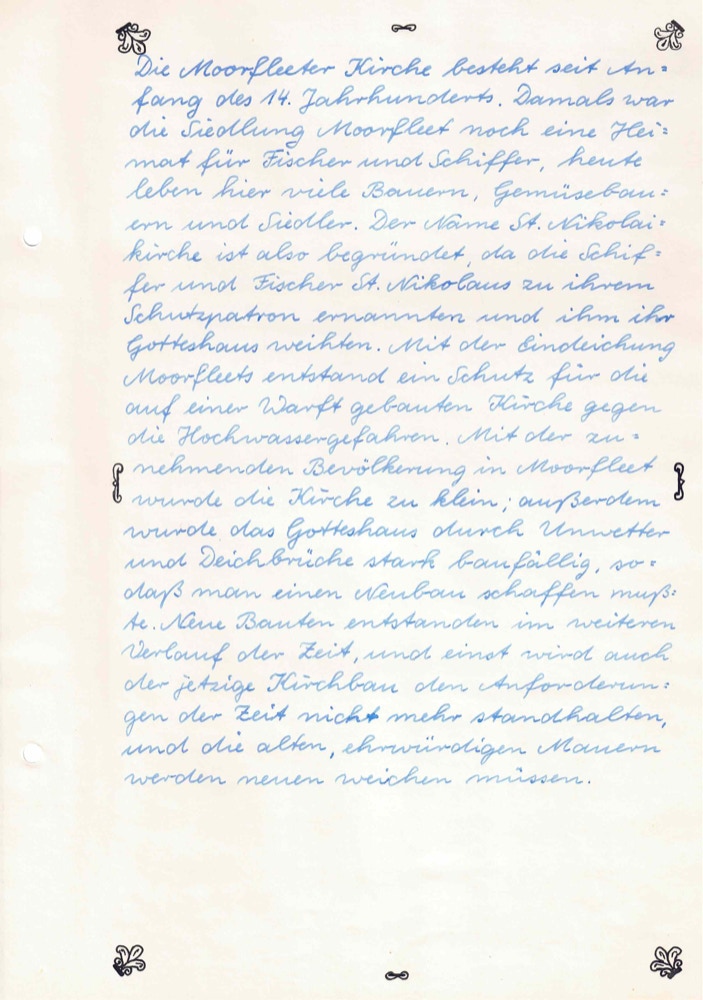 Die Moorfleeter Kirche besteht seit An=
fang des 14. Jahrhunderts. Damals war
die Siedlung Moorfleet noch eine Hei=
mat für Fischer und Schiffer, heute
leben hier viele Bauern, Gemüsebau=
ern und Siedler. Der Name St. Nikolai=
kirche ist also begründet, da die Schif=
fer und Fischer St. Nikolaus zu ihrem
Schutzpatron ernannten und ihm ihr
Gotteshaus weihten. Mit der Eindeichung
Moorfleets entstand ein Schutz für die
auf einer Warft gebauten Kirche gegen
die Hochwassergefahren. Mit der zu=
nehmenden Bevölkerung in Moorfleet
wurde die Kirche zu klein; außerdem
wurde das Gotteshaus durch Unwetter
und Deichbrüche stark baufällig, so=
daß man einen Neubau schaffen muß=
te. Neue Bauten entstanden im weiteren
Verlauf der Zeit, und einst wird auch
der jetzige Kirchbau den Anforderun=
gen der Zeit nicht mehr standhalten,
und die alten, ehrwürdigen Mauern
werden neuen weichen müssen.